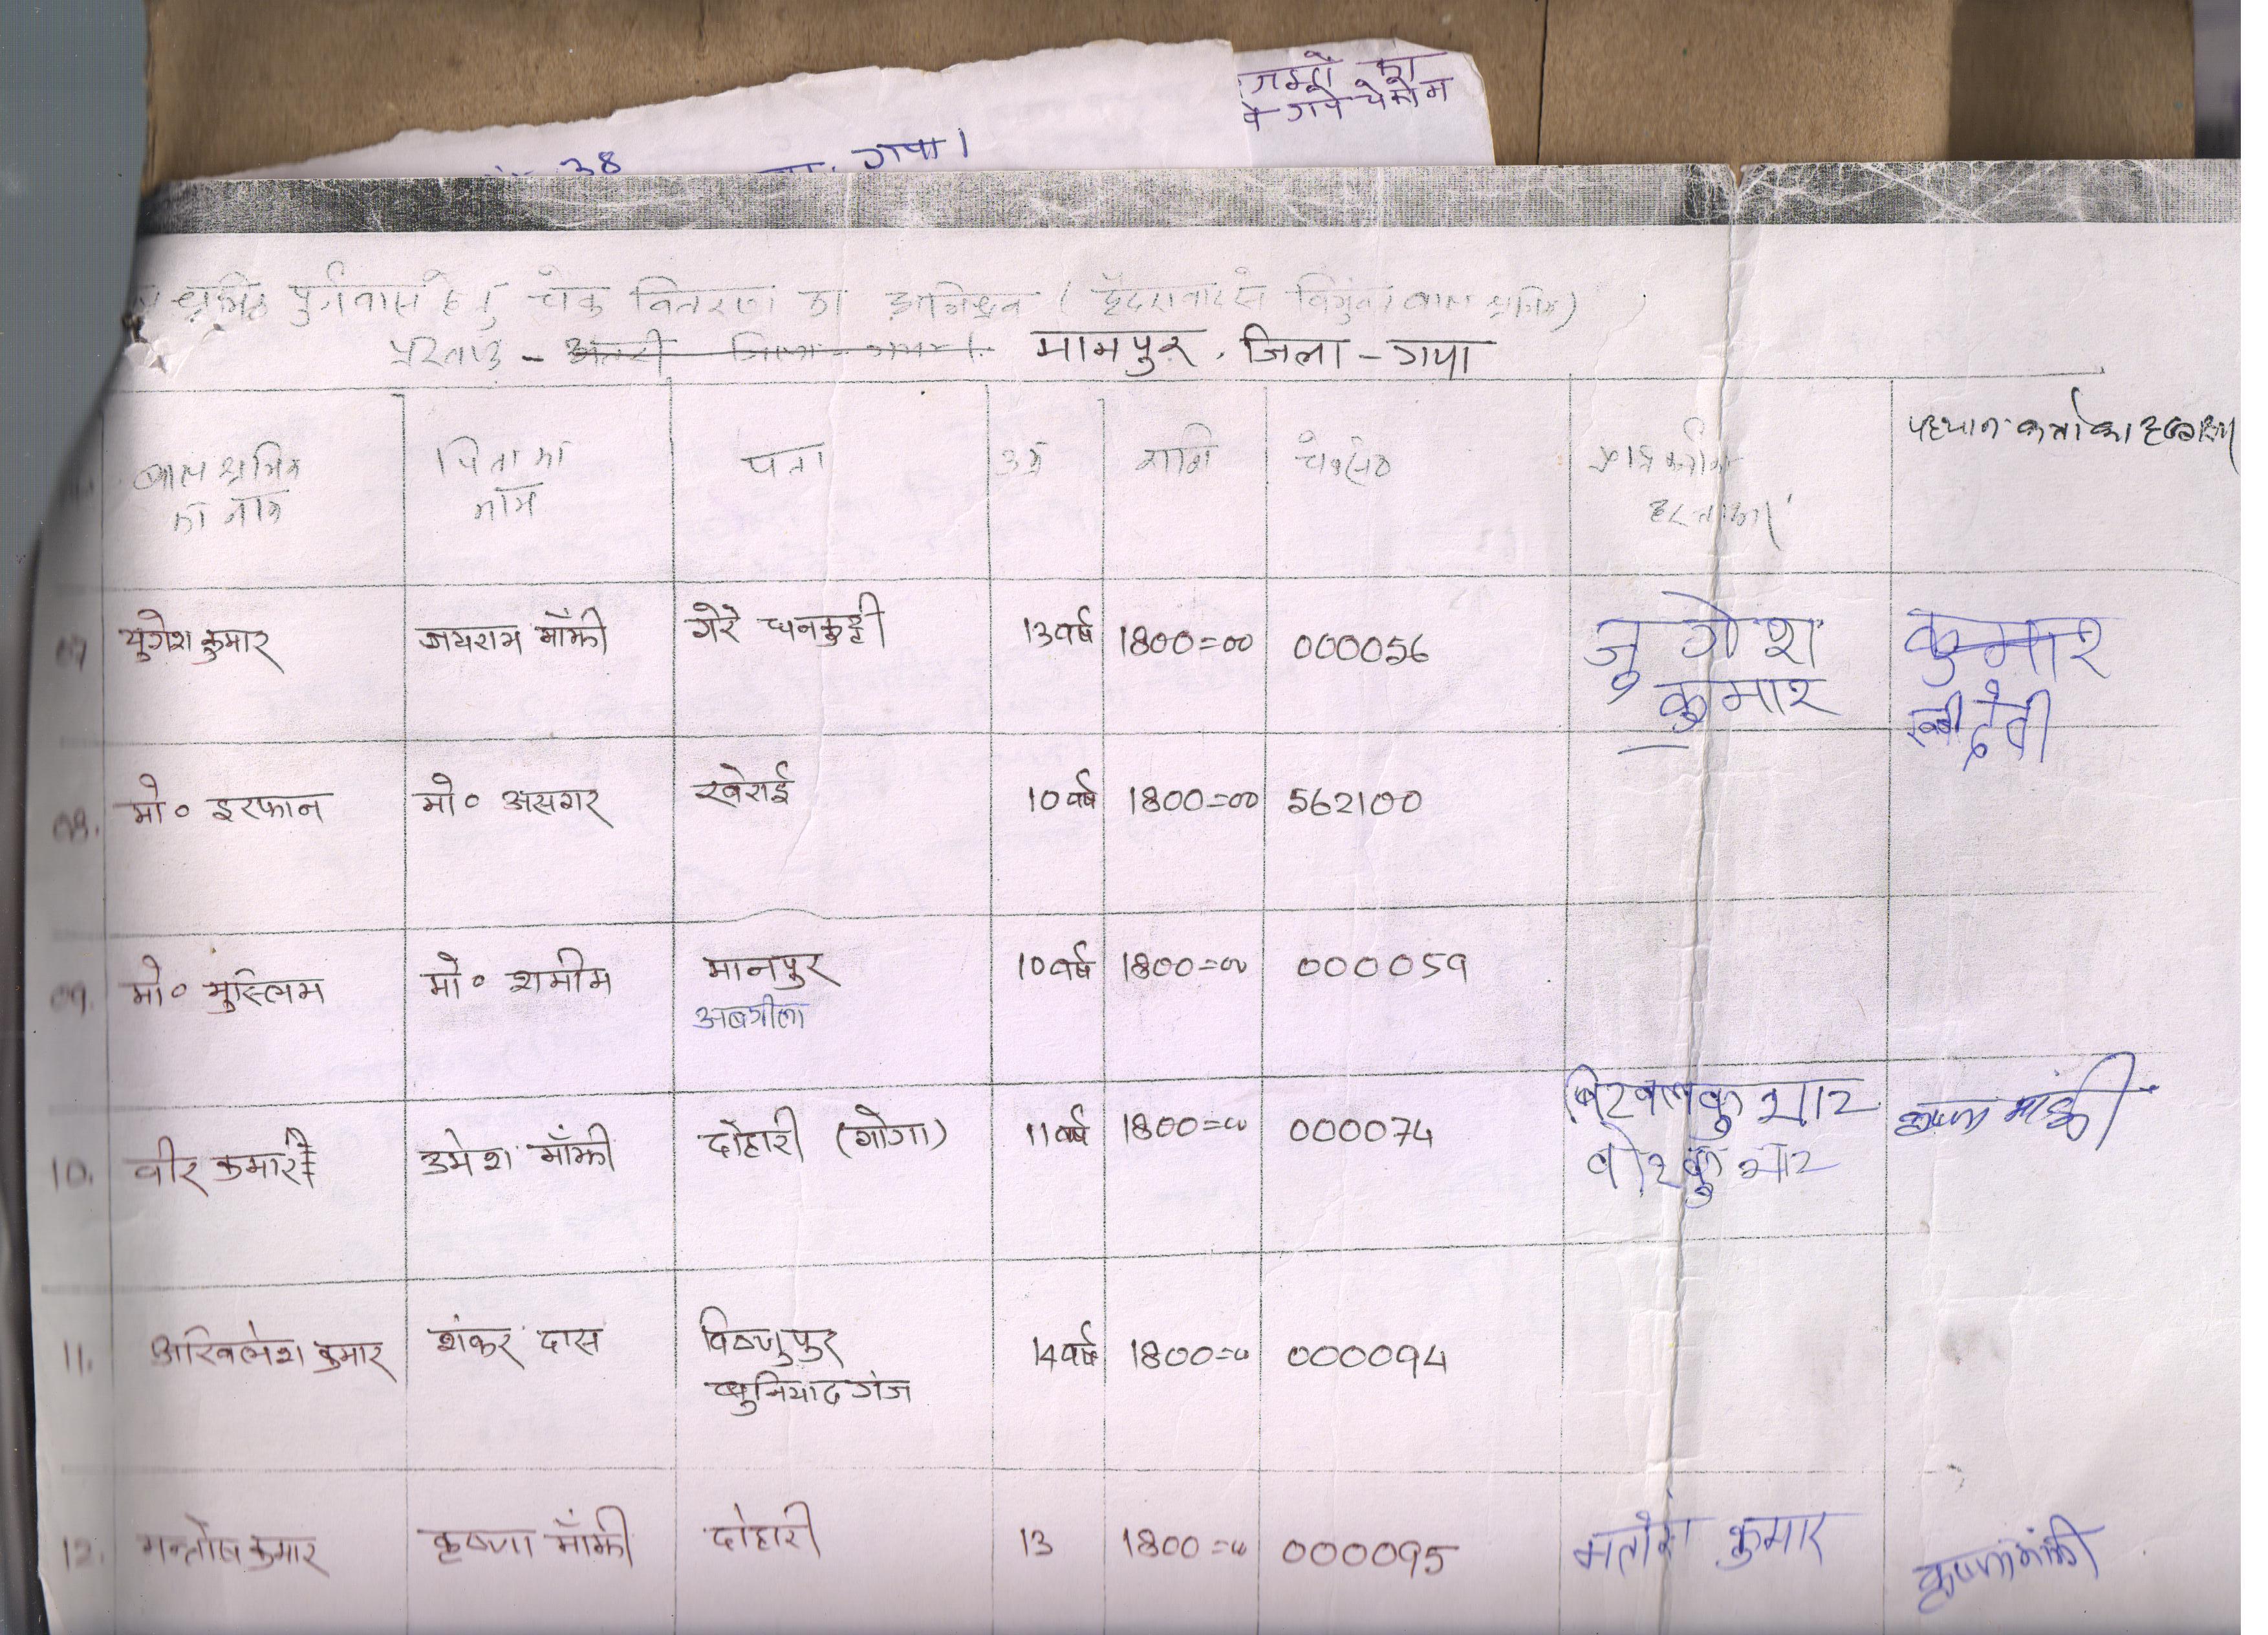 का
38
गया।
श्रमिक पुर्नवास हेतु चेक वितरण का अभिश्रव (हैदराबाद से विमुक्त बाल श्रमिक)
प्रखण्ड - मानपुर, जिला - गया
बाल श्रमिक का नाम
पिता का नाम
पता
उम्र
राशि
चेक सं०
प्राप्तकर्ता का हस्ताक्षर
पहचान कर्त्ता का हस्ताक्षर
07 युगेश कुमार जयराम माँझी गेरे धनकुट्टी 13 वर्ष 1800=00 000056 जुगेश कुमार
कुमार देवी
08. मो० इरफान मो० असगर खेराई 10 वर्ष 1800=00 562100
09. मो० मुस्लिम मो० शमीम मानपुर 10 वर्ष 1800=00 000059
अबगीला
10. वीर कुमार उमेश माँझी दोहारी (गोगा) 11 वर्ष 1800=00 000074 बिरबल कुमार कृष्णा मांझी
बीर कुमार
11. अखिलेश कुमार शंकर दास विष्णुपुर 14 वर्ष 1800=00 000094
बुनियादगंज
12. मन्तोष कुमार कृष्णा माँझी दोहारी 13 1800=00 000095 मतोश कुमार कृष्णा मांझी